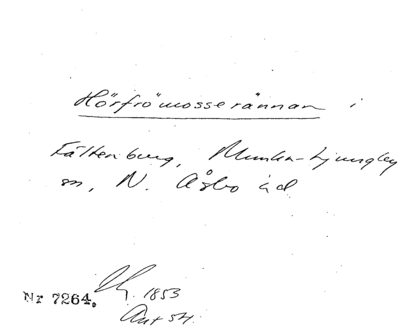 Hörfrömosserännan i
Fältenburg, Munka-Ljungby
sn, N. Åsbo hd
Nr 7264. 1853